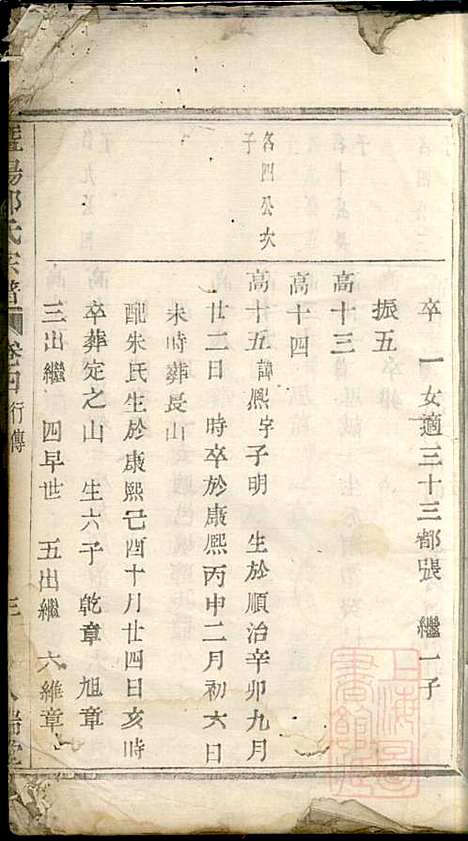 卒 一女適三十三都張 繼一子
振五
高十三
高十四
名四公次子
高十五諱熙字子明 生於順治辛卯九月
廿二日 時卒於康熙丙申二月初六日
未時葬長山
配朱氏生於康熙己酉十月廿四日亥時
卒葬定之山 生六子 乾章 旭章
三出繼 四早世 五出繼 六維章
陽 氏宗譜 卷 行傳 三
上海圖書館藏